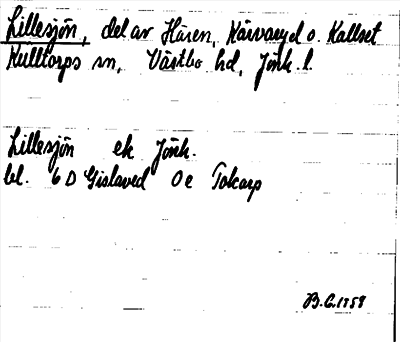 Lillesjön, del av Hären, Kärvaryd o. Kallset
Kulltorps sn, Västbo hd, Jönk. l.
Lillesjön ek Jönk.
bl. 6 D Gislaved 0 e Torarp
B.G. 1958